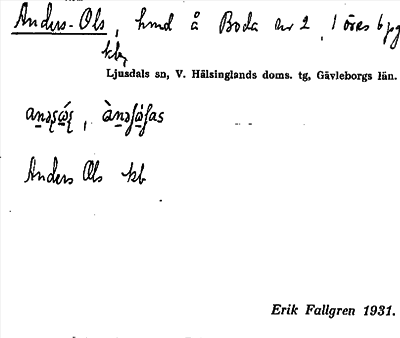 Anders-Ols, hmd å Boda nr 2, 1 öres bjg
kb,
Ljusdals sn, V. Hälsinglands doms. tg, Gävleborgs län.
Anders Ols kb
Erik Fallgren 1931.